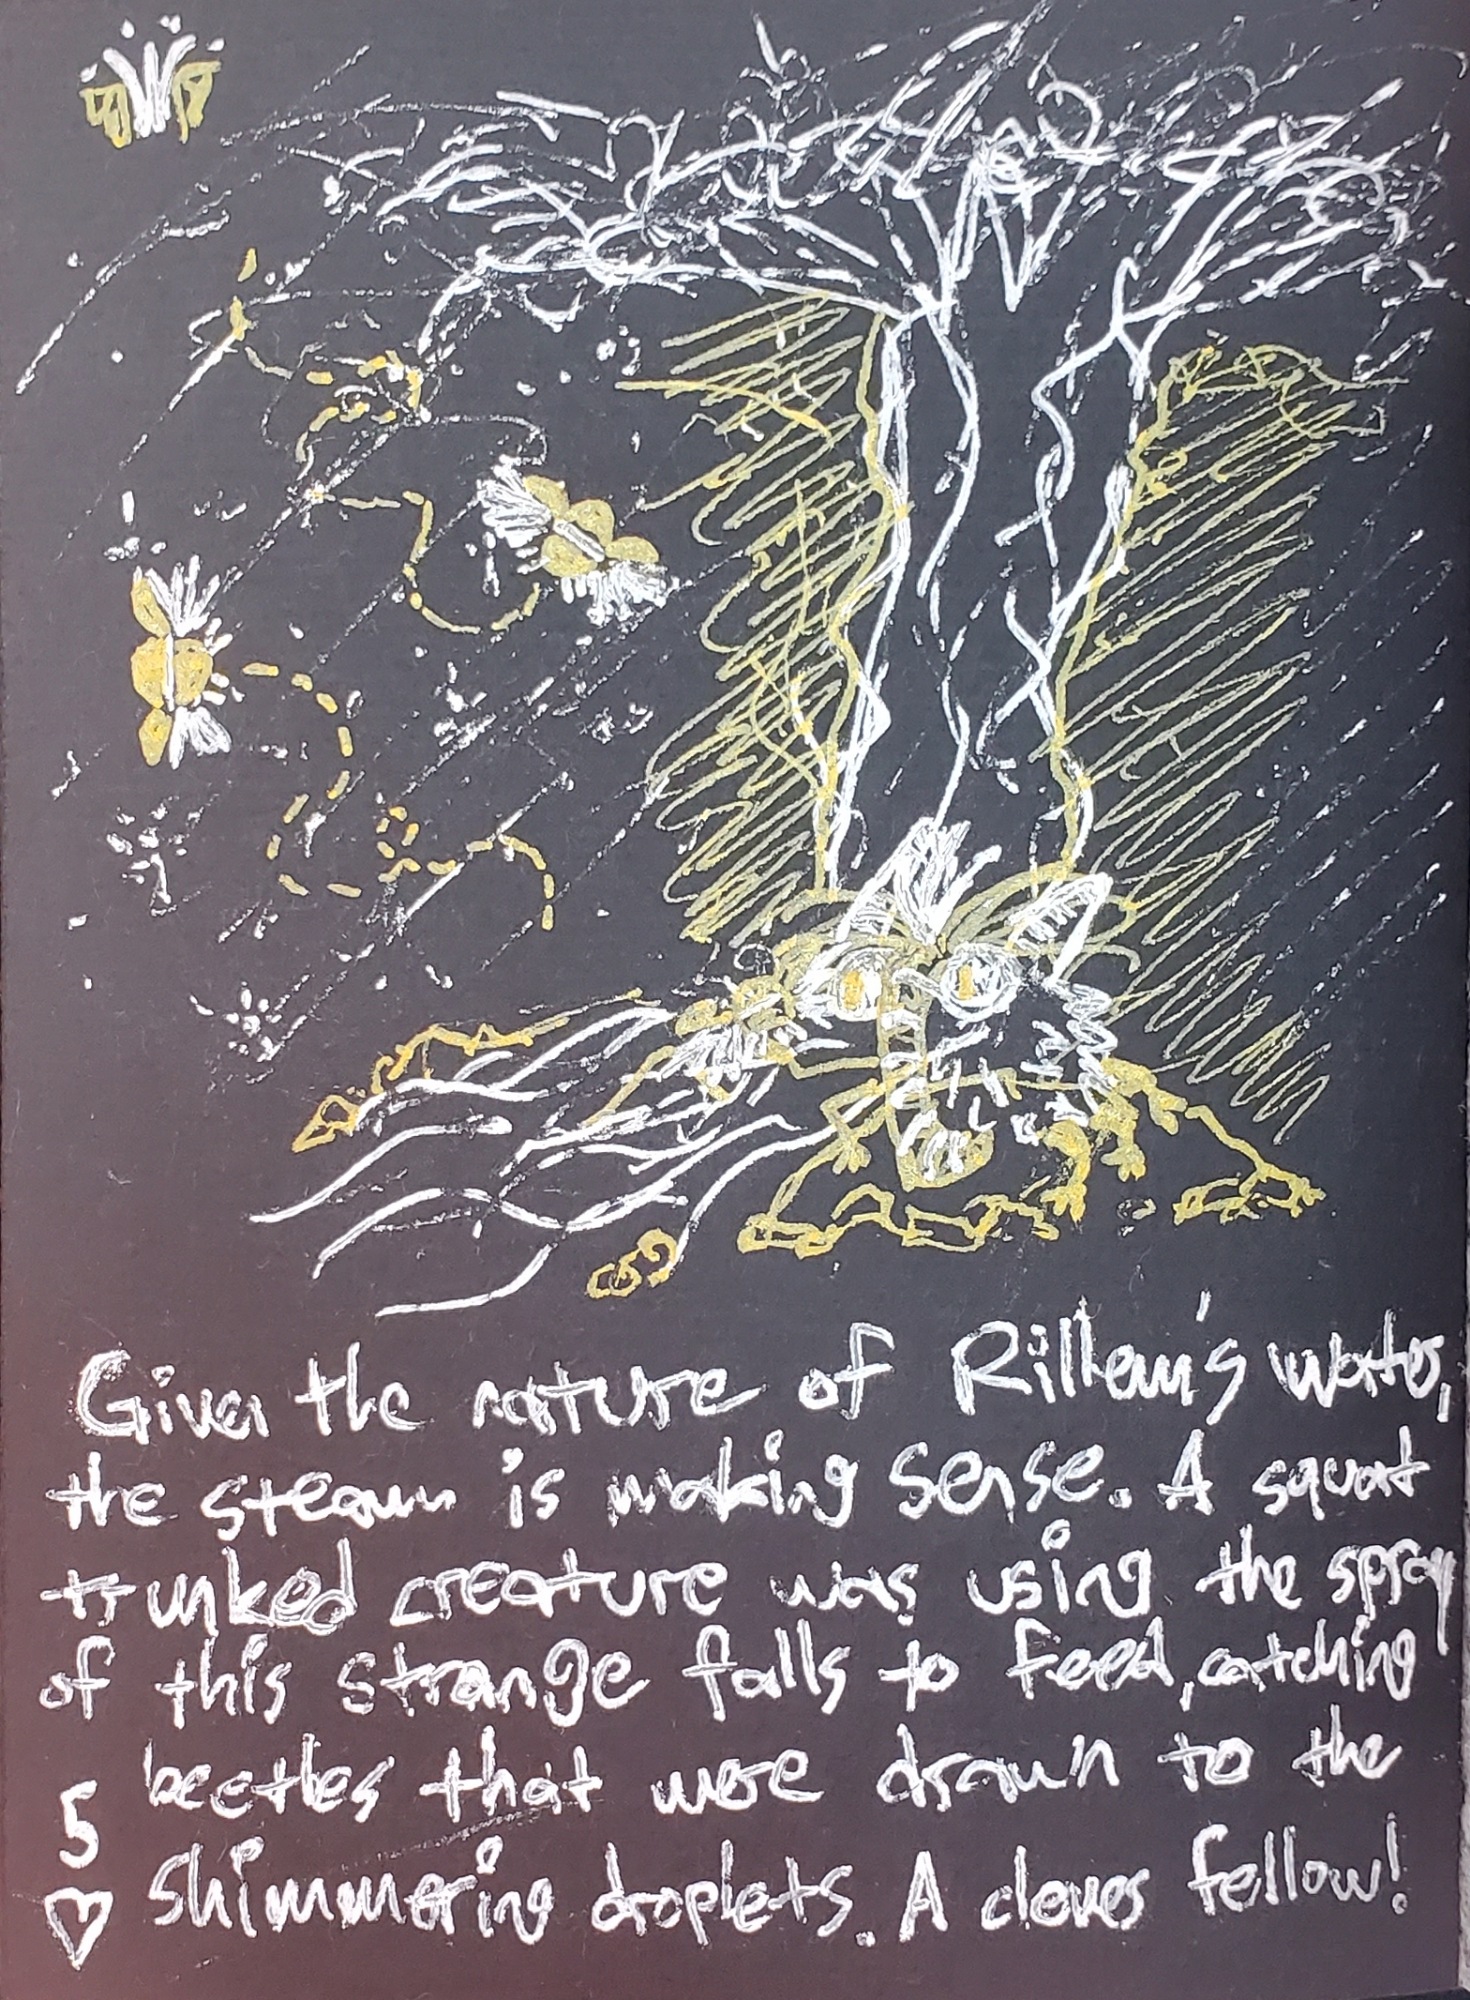 Given the nature of Rillem's water,
the steam is making sense. A squat
trunked creature was using the spray
of this strange falls to feed, catching
beetles that were drawn to the
5 shimmering droplets. A clever fellow!